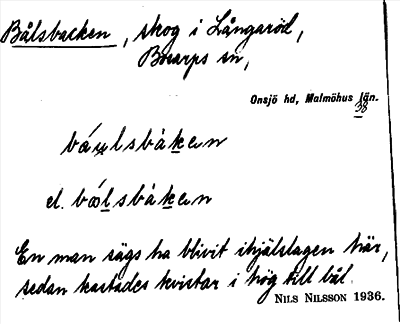 Bålsbacken, skog i Långaröd,
Bosarps sn,
Onsjö hd, Malmöhus län.
38
el.
En man sägs ha blivit ihjälslagen här,
sedan kastades kvistar i hög till bål.
NILS NILSSON 1936.